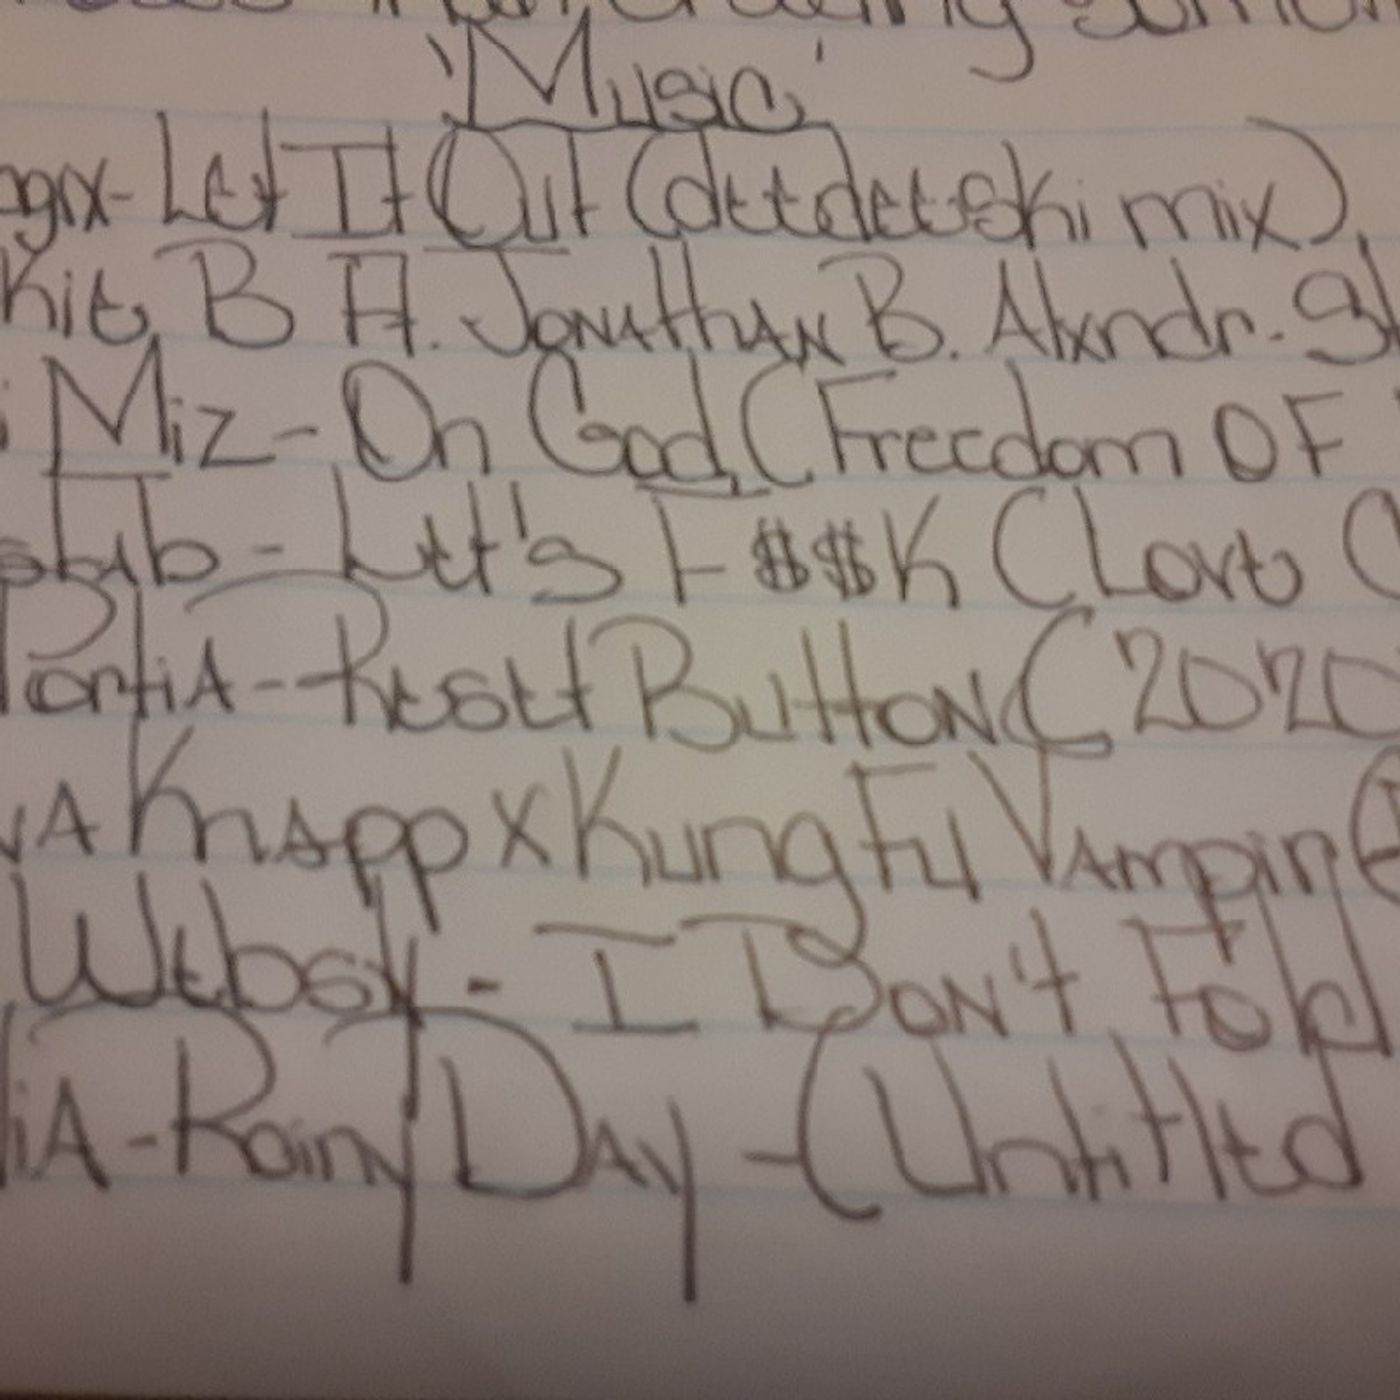 'Music'
Let It Out (deetdeetski mix)
Kie, B A. Jonathan B. Alxndr.
Miz - On God (Freedom OF
- Let's F$$K (Love C
Portia - Reset Button (2020
Knapp x Kung Fu Vampire
Webby - I Don't Fold
- Rainy Day - (Untitled